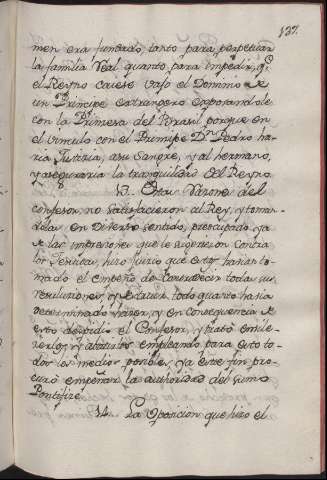 137.
men era fundado, tanto para perpetuar
la familia Real quanto para impedir, q.e
el Reyno cayese vajo el Dominio de
un Principe extrangero casandole
con la Princesa del Brasil porque en
el vinculo con el Principe D.n Pedro ha-
ria Justicia, a su Sangre, y al hermano,
y aseguraria la tranquilidad del Reyno.
13. Estas razones del
confesor, no satisfacieron al Rey, y toman-
dolas en diverso sentido, preocupado ya
de las impresiones que le sugirieron contra
los Jesuitas, hizo juicio que estos havian to-
mado el empeño de contradecir todas sus
resoluciones, y de todo quanto havia
determinado hazer, y en consequencia de
esto despidio el Confesor, y trató
y abatirlos empleando para esto to-
dos los medios posibles, y a este fin pro-
curó empeñar la authoridad del Sumo
Pontifize.
14. La Oposicion que hizo el